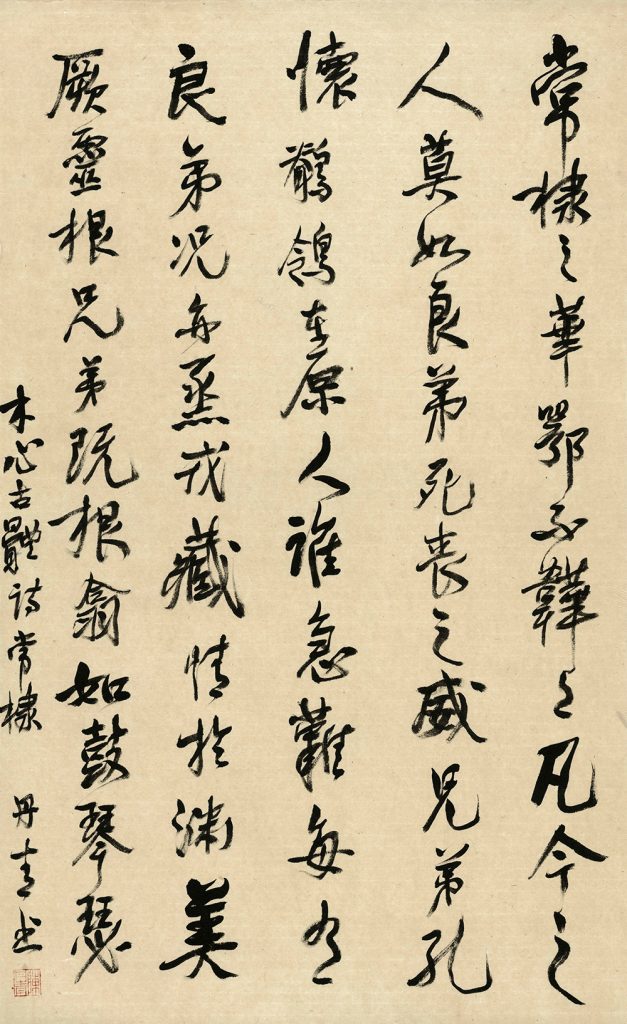 常棣之華鄂不韡々凡今之
人莫如良弟死喪之威兄弟孔
懷鶺鴒在原人誰急難每有
良弟況亦烝戎藏情於淵美
厥靈根兄弟既根翕如鼓琴瑟
木心古體詩常棣
丹青书